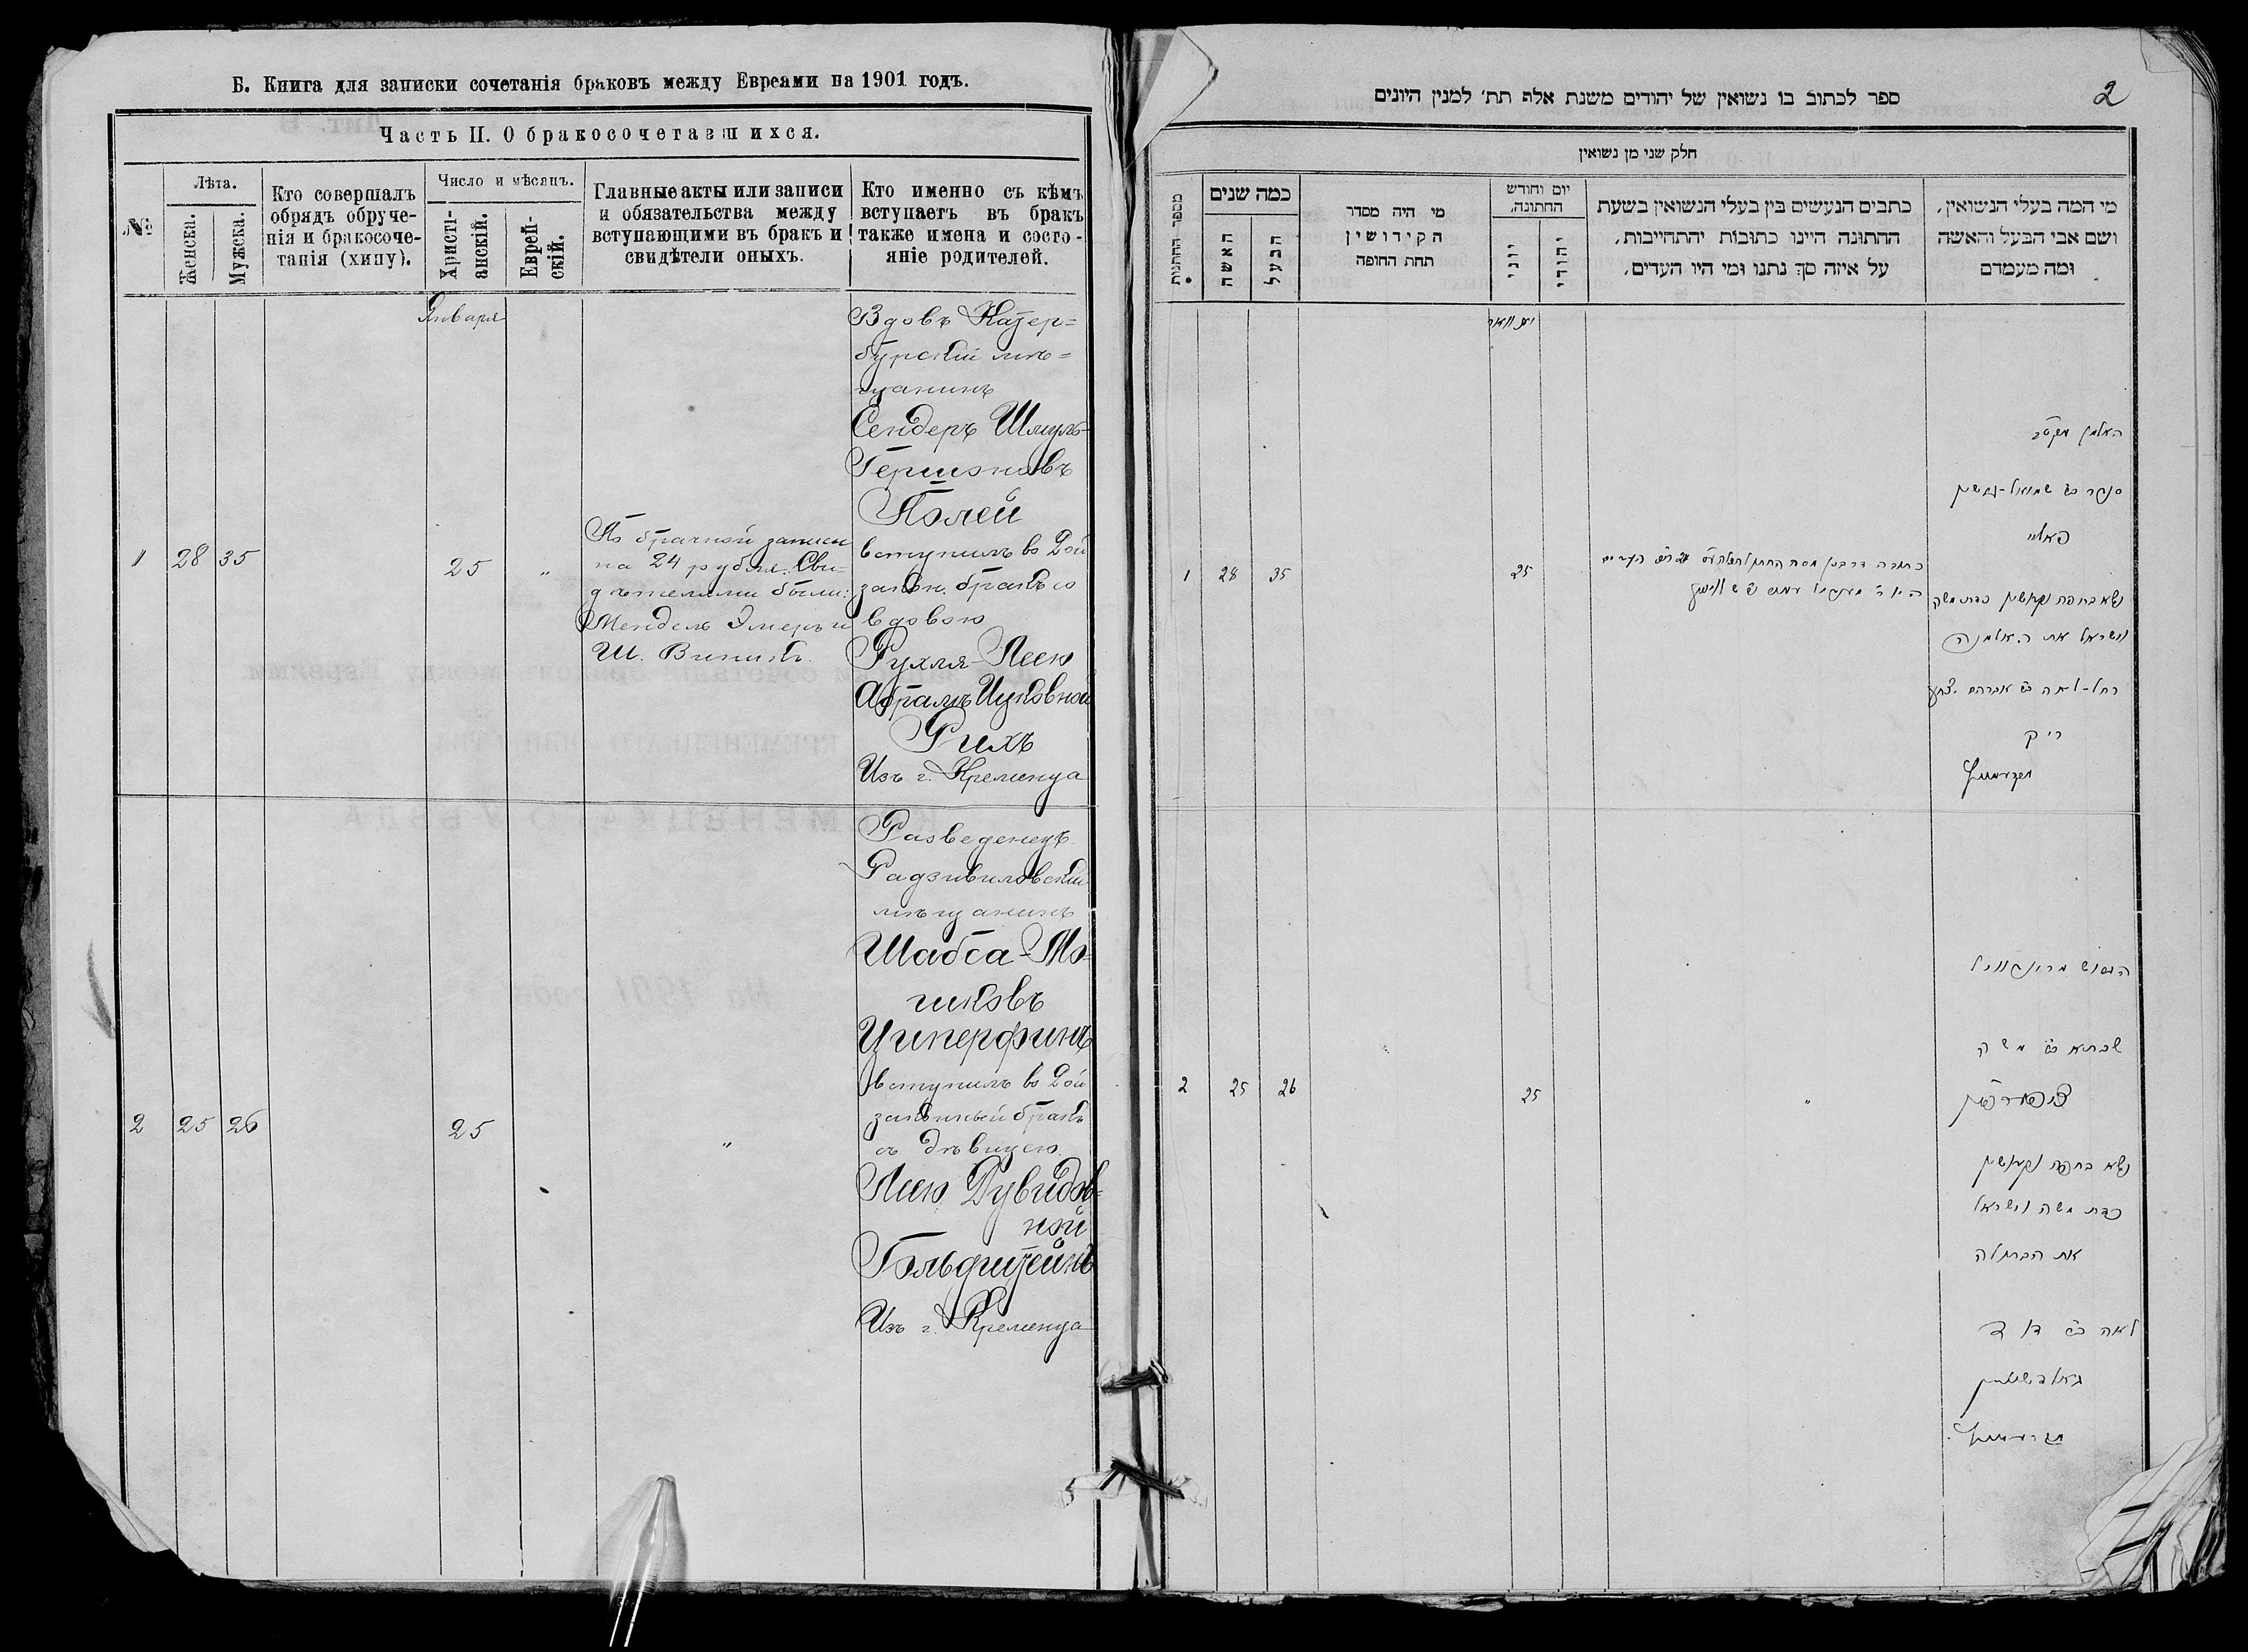 Б. Книга для записки сочетанія браковъ между Евреями на 1901 годъ.
Часть II. О бракосочетавшихся.
№
Лѣта.
Женска.
Мужска.
Кто совершалъ
обрядъ обруче-
нія и бракосоче-
танія (хипу).
Число и мѣсяцъ.
Христі-
анскій.
Еврей-
скій.
Главные акты или записи
и обязательства между
вступающими въ бракъ и
свидѣтели оныхъ.
Кто именно съ кѣмъ
вступаетъ въ бракъ
также имена и состо-
яніе родителей.
Января
1 28 35
25 "
По брачной записи
на 24 рубля. Сви-
дѣтелями были:
Мендель Элмеръ и
Ш.
Вдовъ Катер-
бурскій мѣ-
щанинъ
Сендеръ Шмуль-
Гершоновъ
Полей
вступилъ во 2ой
законн. бракъ со
вдовою
Рухля-Леею
Абрамъ Ицковной
Рихъ
Изъ г. Кременца
2 25 26
25
"
Разведенецъ
Радзивиловскій
мѣщанинъ
Шабса-Мо-
шковъ
Циперфинъ
вступилъ во 2ой
законный бракъ
съ дѣвицею
Леею Дувидов-
ной
Гольдштейнъ
Изъ г. Кременца
2
ספר לכתוב בו נשואין של יהודים משנת אלף תת׳ למנין היונים
חלק שני מן נשואין
מספר החתנות
כמה שנים
האשה
הבעל
מי היה מסדר
הקידושין
תחת החופה
יום וחודש
החתונה.
יוני
יהודי
כתבים הנעשים בין בעלי הנשואין בשעת
החתונה היינו כתובות יהתחייבות,
על איזה סך נתנו ומי היו העדים.
מי המה בעלי הנשואין,
ושם אבי הבעל והאשה
ומה מעמדם
יאנוואר
1 28 35
25
האלמן
סנדר ב״ר שמואל-גרשון
פאליי
נשא בחופה וקידושין כדת משה
וישראל את האלמנה
רחל-לאה ב״ר אברהם יצחק
ריק
מקרעמעניץ
2 25 26
25
"
הגרוש מרדזיוויל
שבתא ב״ר משה
ציפערפין
נשא בחופה וקידושין
כדת משה וישראל
את הבתולה
לאה ב״ר דוד
גאלדשטיין
מקרעמעניץ